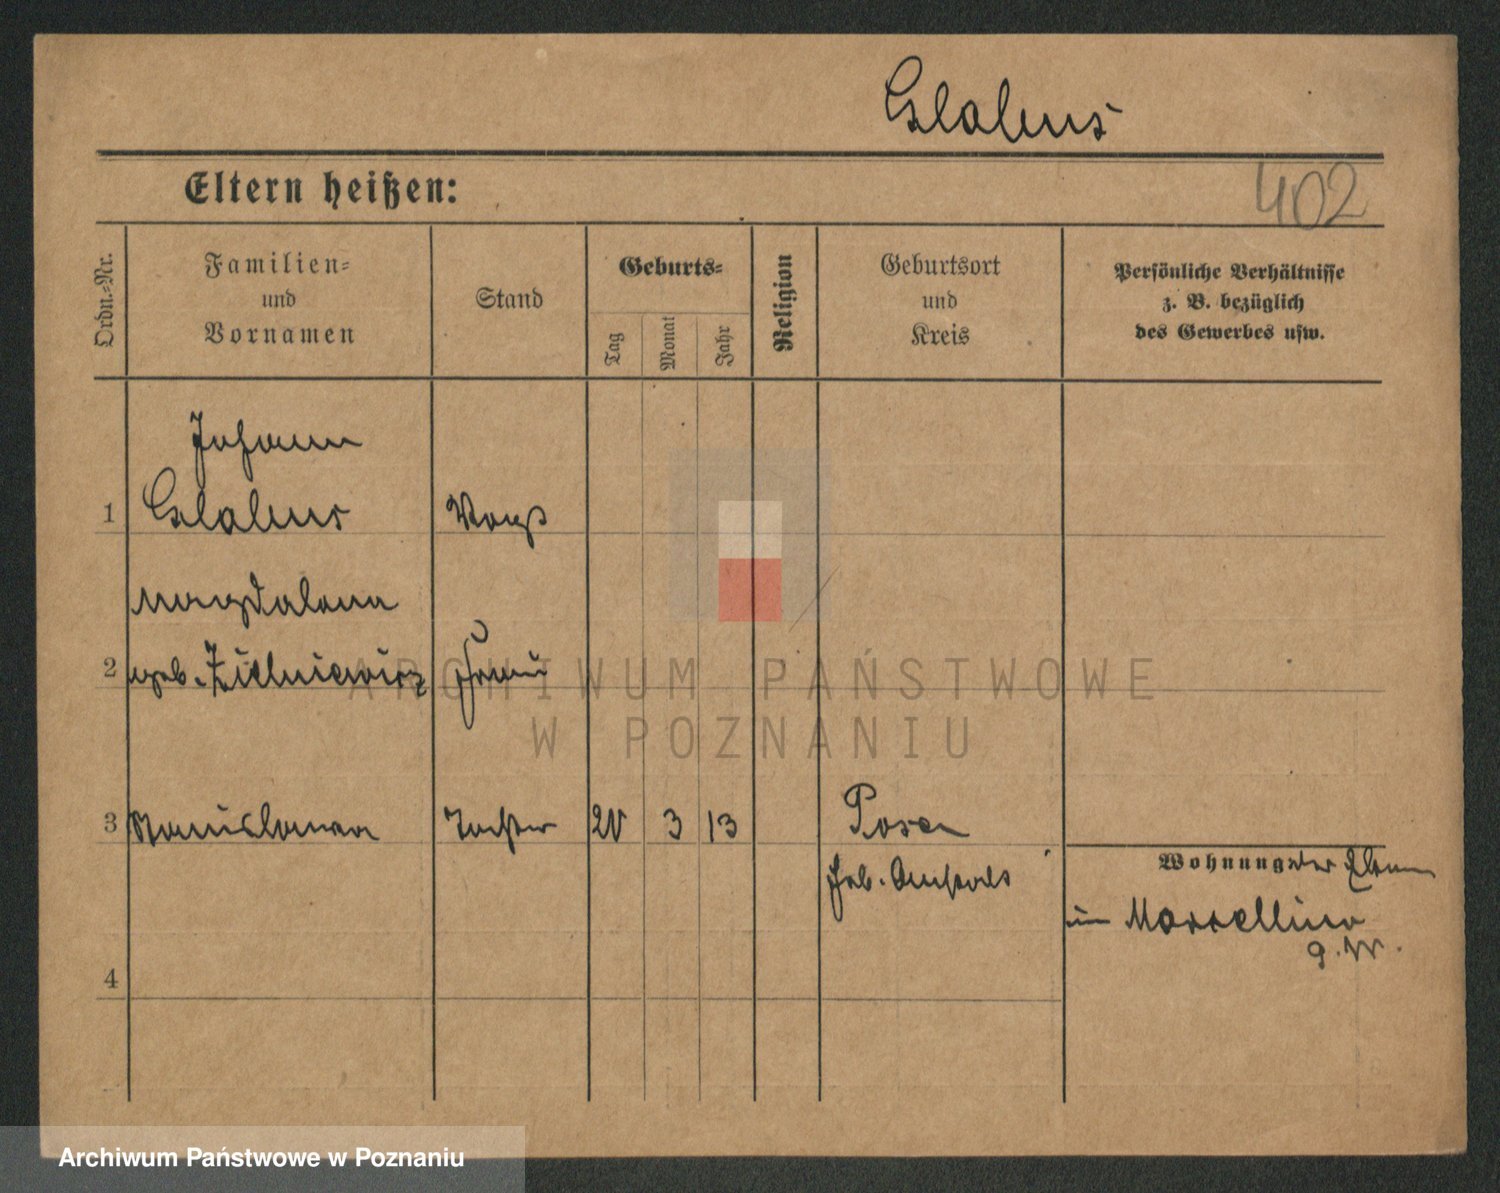 Glabus
Eltern heißen:
402
Ordn.-Nr.
Familien-
und
Vornamen
Stand
Geburts-
Tag
Monat
Jahr
Religion
Geburtsort
und
Kreis
Persönliche Verhältnisse
z. B. bezüglich
des Gewerbes usw.
Johann
1 Glabus Vogt
Magdalena
2 geb. Zielniewicz Frau
3 Stanislawa Tochter 20 3 13 Posen
Wohnung der Eltern
in Marcellino
4
ARCHIWUM PAŃSTWOWE
W POZNANIU
Archiwum Państwowe w Poznaniu